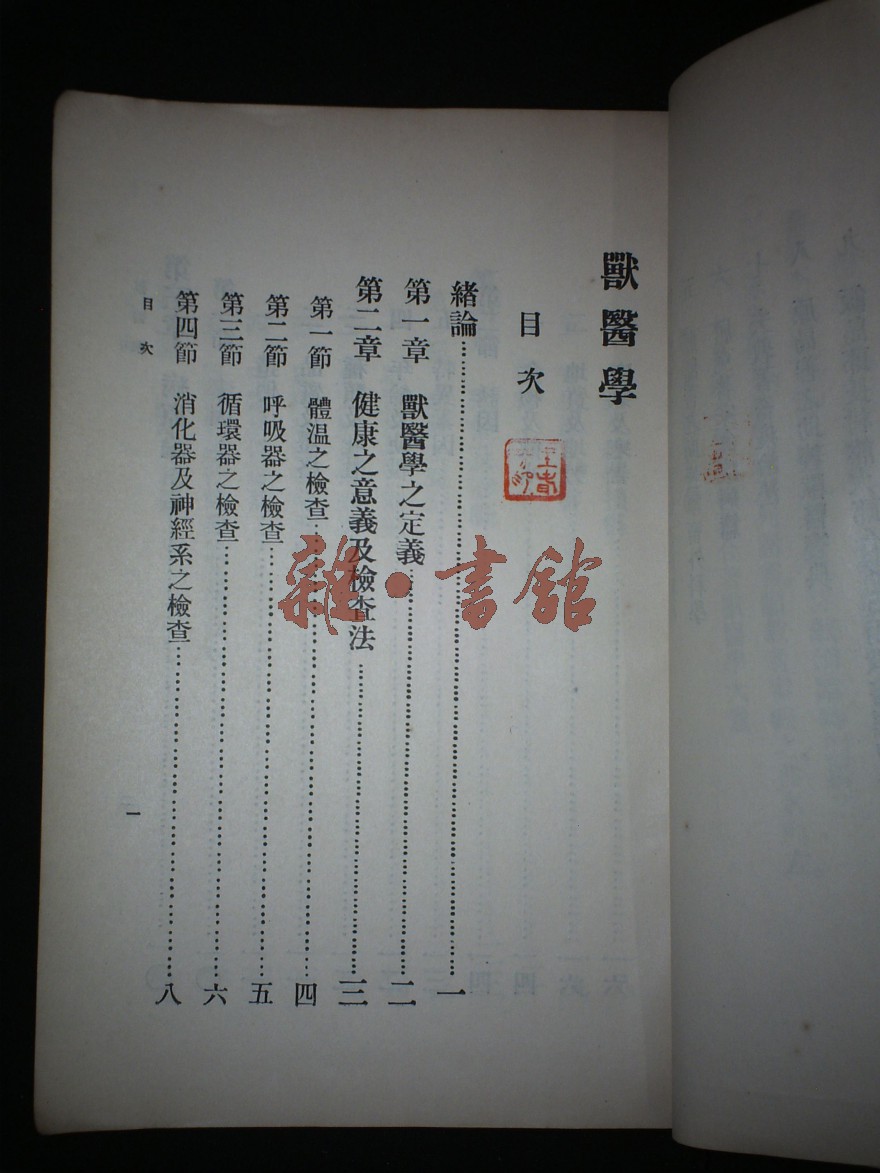 獸醫學
目次
緒論……一
第一章 獸醫學之定義……二
第二章 健康之意義及檢查法……三
第一節 體温之檢查……四
第二節 呼吸器之檢查……五
第三節 循環器之檢查……六
第四節 消化器及神經系之檢查……八
目次
一
雜·書館